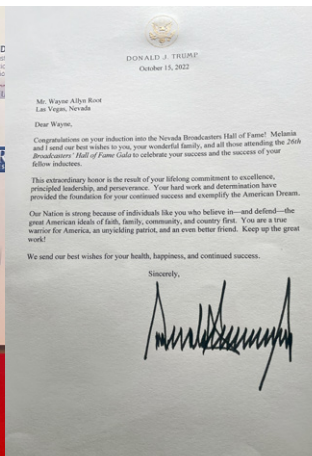 DONALD J. TRUMP
October 15, 2022
Mr. Wayne Allyn Root
Las Vegas, Nevada
Dear Wayne,
Congratulations on your induction into the Nevada Broadcasters Hall of Fame! Melania
and I send our best wishes to you, your wonderful family, and all those attending the 26th
Broadcasters' Hall of Fame Gala to celebrate your success and the success of your
fellow inductees.
This extraordinary honor is the result of your lifelong commitment to excellence,
principled leadership, and perseverance. Your hard work and determination have
provided the foundation for your continued success and exemplify the American Dream.
Our Nation is strong because of individuals like you who believe in—and defend—the
great American ideals of faith, family, community, and country first. You are a true
warrior for America, an unyielding patriot, and an even better friend. Keep up the great
work!
We send our best wishes for your health, happiness, and continued success.
Sincerely,